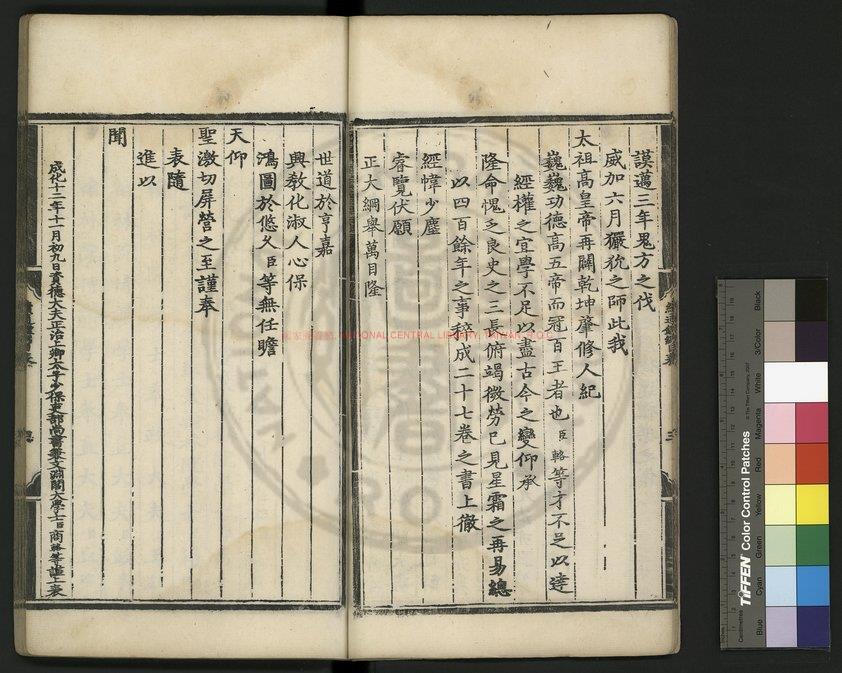 謨邁三年鬼方之伐
威加六月玁狁之師此我
太祖高皇帝再闢乾坤肇修人紀
巍巍功德高五帝而冠百王者也臣輅等才不足以達
經權之宜學不足以盡古今之變仰承
隆命愧乏良史之三長俯竭微勞已見星霜之再易總
以四百餘年之事稡成二十七卷之書上徹
經幃少塵
睿覽伏願
正大綱舉萬目隆
世道於亨嘉
興教化淑人心保
鴻圖於悠久臣等無任瞻
天仰
聖激切屏營之至謹奉
表隨
進以
聞
成化十二年十一月初九日資德大夫正治上卿太子少保吏部尚書兼文淵閣大學士臣商輅等謹上表
國家圖書館 NATIONAL CENTRAL LIBRARY, TAIWAN, R.O.C
TIFFEN Color Control Patches
© The Tiffen Company, 2007
Centimetres
Blue
Cyan
Green
Yellow
Red
Magenta
White
3/Color
Black